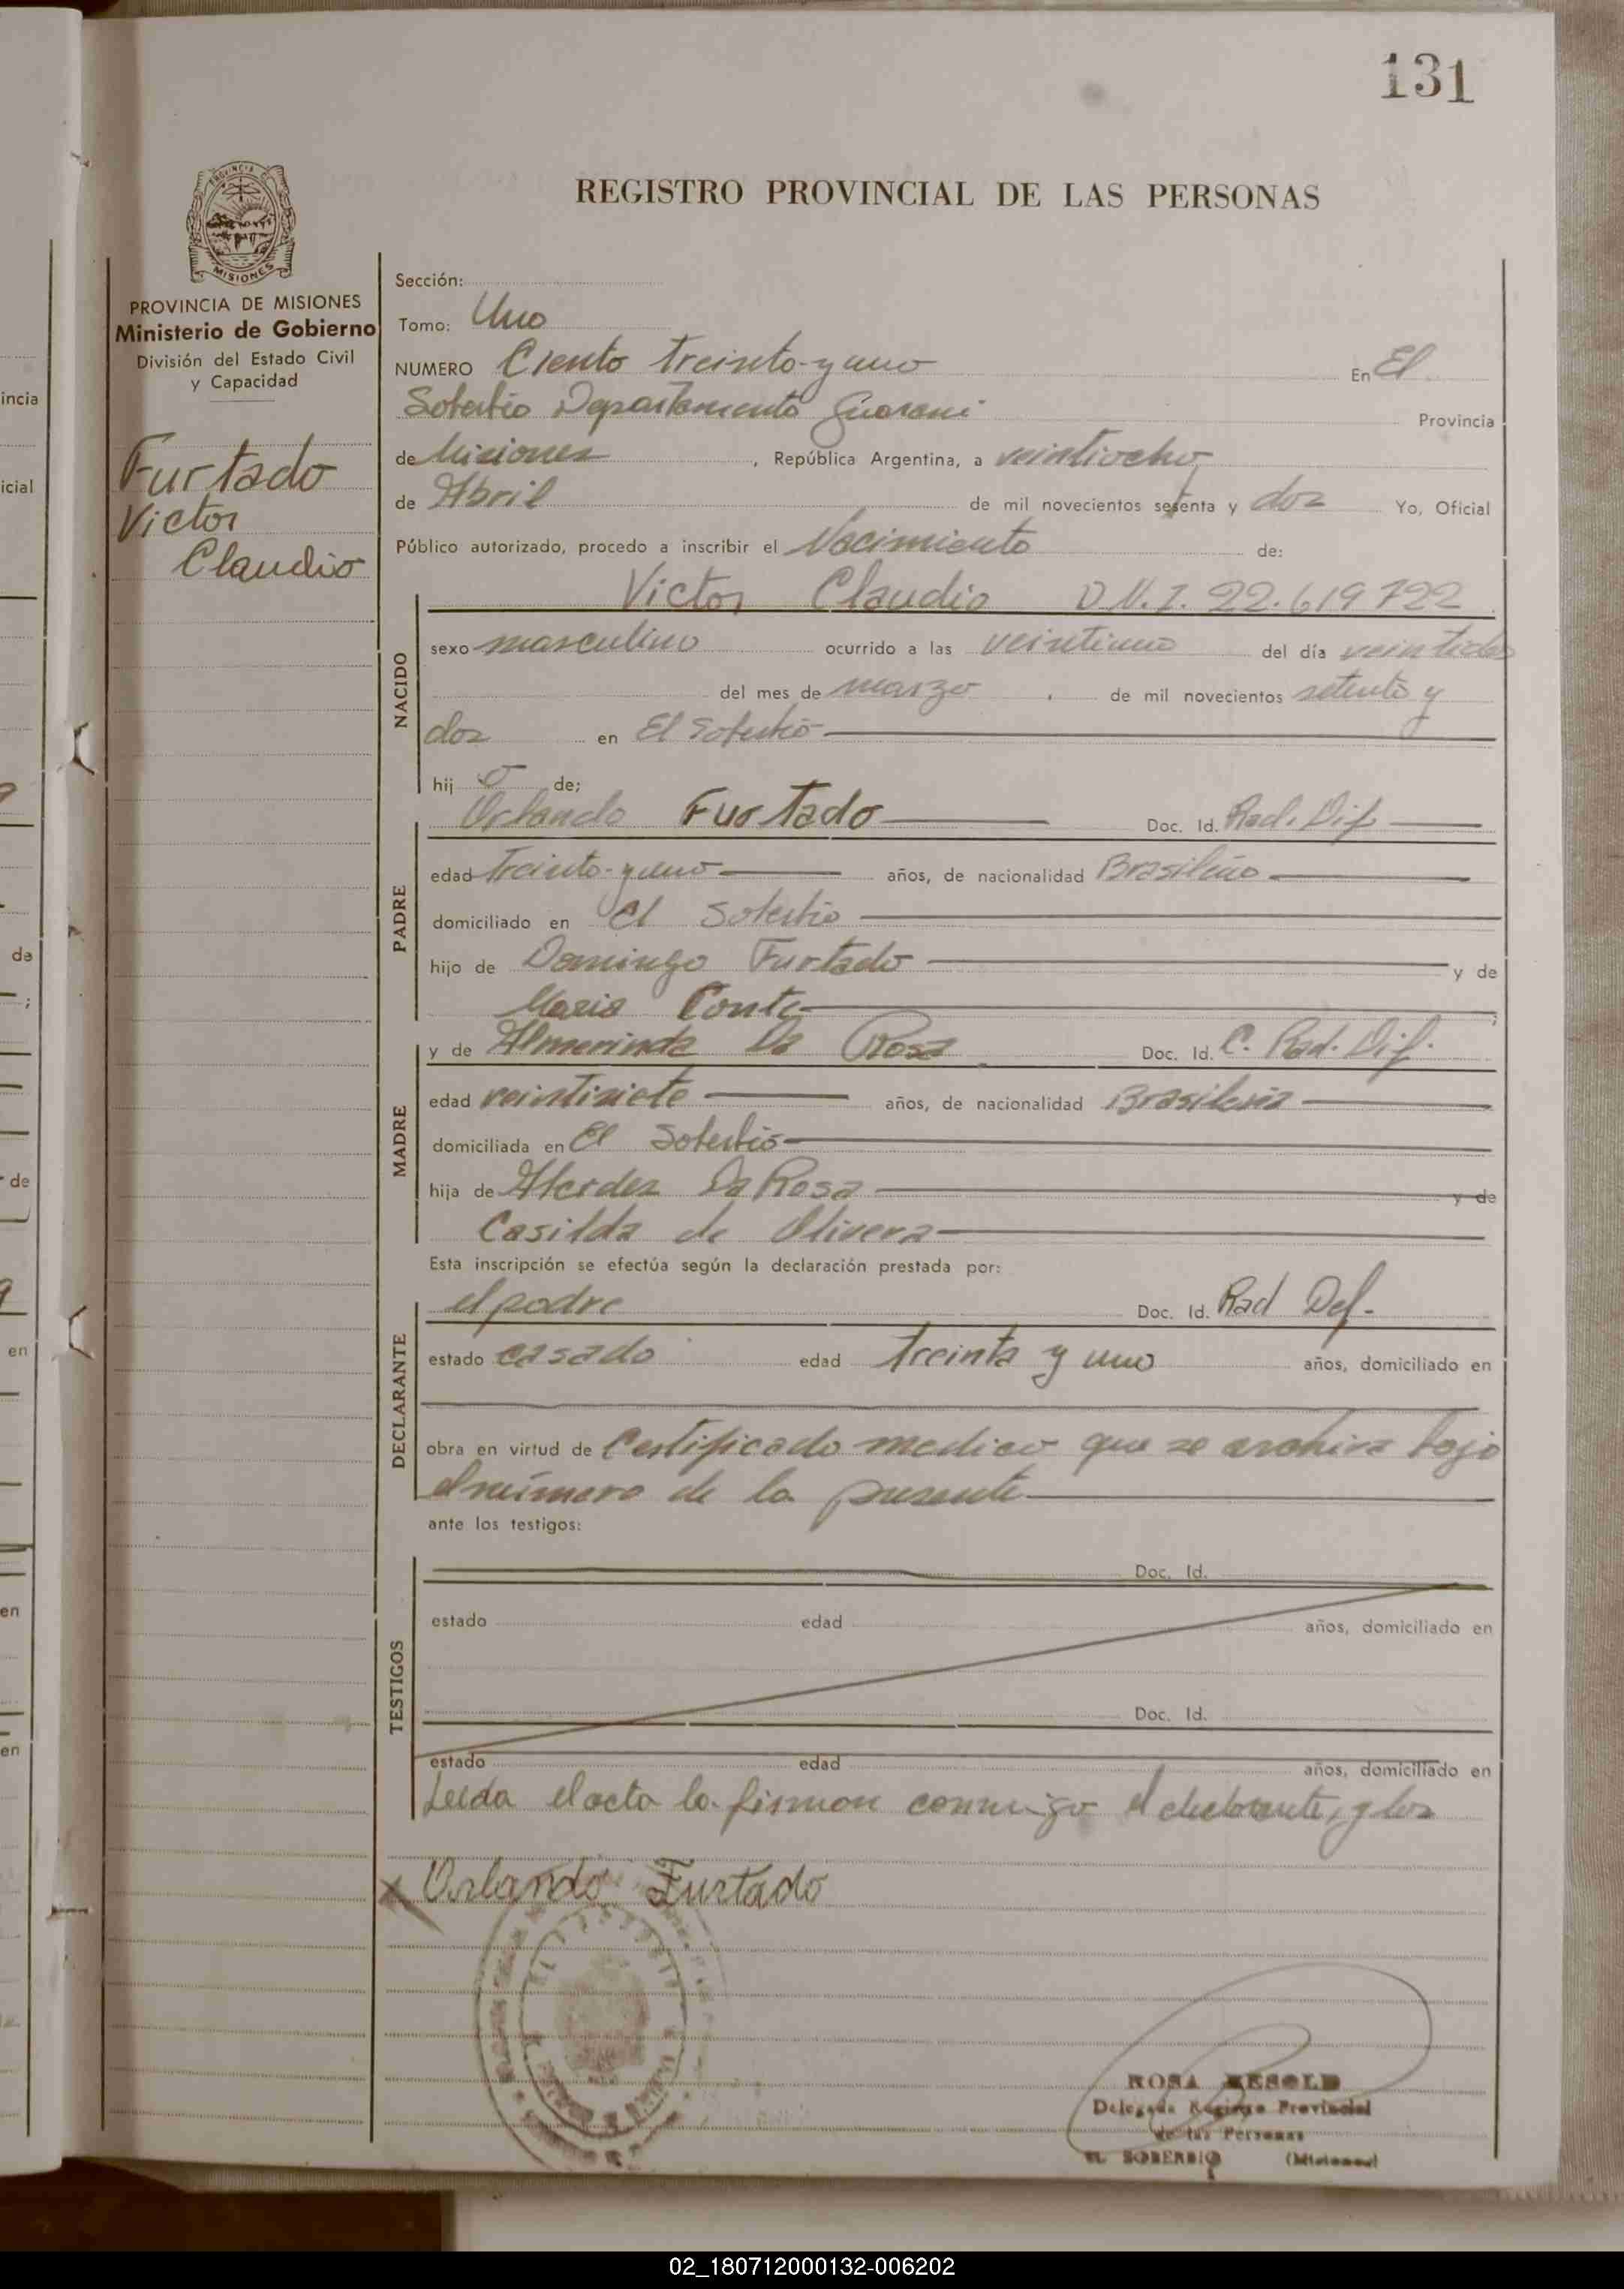 131
REGISTRO PROVINCIAL DE LAS PERSONAS
PROVINCIA DE MISIONES
MISIONES
PROVINCIA DE MISIONES
Ministerio de Gobierno
División del Estado Civil
y Capacidad
Furtado
Victor
Claudio
Sección:
Tomo: Uno
NUMERO Ciento treinta y uno En El
Soberbio Departamento Guarani Provincia
de Misiones, República Argentina, a veintiocho
de Abril de mil novecientos setenta y dos Yo, Oficial
Público autorizado, procedo a inscribir el Nacimiento de:
Victor Claudio D.N.I. 22.619722
NACIDO
sexo masculino ocurrido a las veintiuno del día veintidos
del mes de marzo, de mil novecientos setenta y
dos en El Soberbio
hij o de;
Orlando Furtado Doc. Id. Rad. Dif
PADRE
edad treinta y uno años, de nacionalidad Brasileño
domiciliado en El Soberbio
hijo de Domingo Furtado y de
Maria Conte
y de Almerinda Da Rosa Doc. Id. C. Rad. Dif.
MADRE
edad veintisiete años, de nacionalidad Brasileña
domiciliada en El Soberbio
hija de Da Rosa y de
Casilda de Olivera
Esta inscripción se efectúa según la declaración prestada por:
el padre Doc. Id. Rad Def.
DECLARANTE
estado casado edad treinta y uno años, domiciliado en
obra en virtud de Certificado medico que se archiva bajo
el número de la presente
ante los testigos:
Doc. Id.
TESTIGOS
estado edad años, domiciliado en
Doc. Id.
estado edad años, domiciliado en
Leida el acta la firman conmigo el declarante, y los
Orlando Furtado
ROSA
Delegada Registro Provincial
de las Personas
EL SOBERBIO (Misiones)
incia
icial
de
;
de
en
en
en
02_180712000132-006202